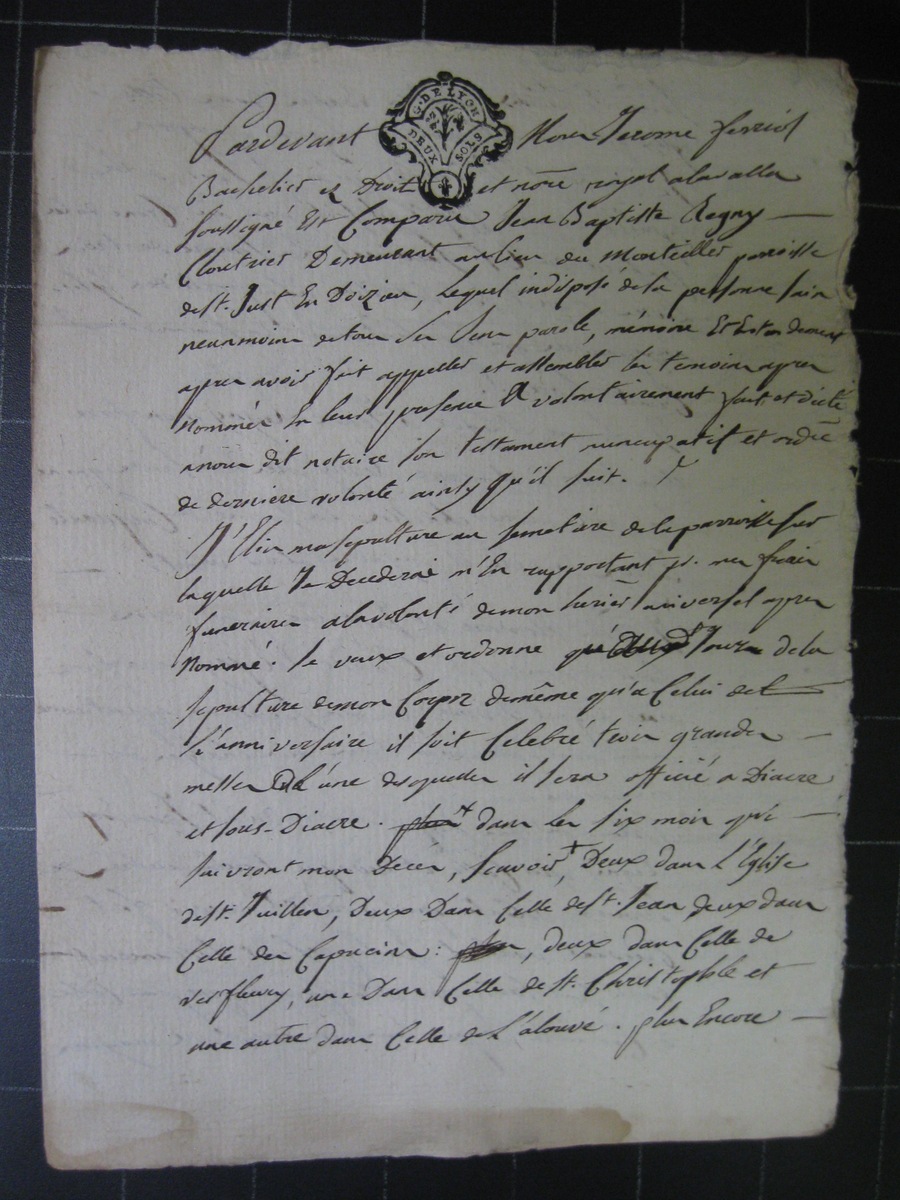 G. DE LYON
DEUX SOLS
Pardevant Nous Jerome ferriol
Bachelier es Droit et nore royal alavalla
soussigné Est Comparu Jean Baptiste Regny
Cloutrier Demeurant au lieu du Monteiller parroisse
de st. Just En Doizieu, Lequel indisposé de la personne sain
neanmoins de tous ses sens parole, mémoire Et Entendement
apres avoir fait appeller et assembler les temoins apres
Nommés En leurs presence A volontairement fait et dicté
a nous dit notaire son testament nuncupatif et ordre
de derniere volonté ainsy qu'il suit.
J'Elis ma sepulture au semetiere de la parroisse sur
laquelle Je Decederai m'En rapportant pr. mes frais
funeraires a la volonté de mon herier universel apres
Nommé. Je veux et ordonne qu'é Jours de la
sepulture de mon Corps de même qu'a Celui de
L'anniversaire il soit Celebré trois grandes
messes a L'une desquelles il sera officié a Diacre
et sous-Diacre. plus + dans les six mois qui
suivront mon Decès, Scavoir +, Deux dans L'Eglise
de st. Juillen, Deux Dans Celle de st. Jean deux dans
Celle des Capucins: , deux dans Celle de
Valfleury, une Dans Celle de st. Christophle et
une autre dans Celle de L'alouvé. plus Encore